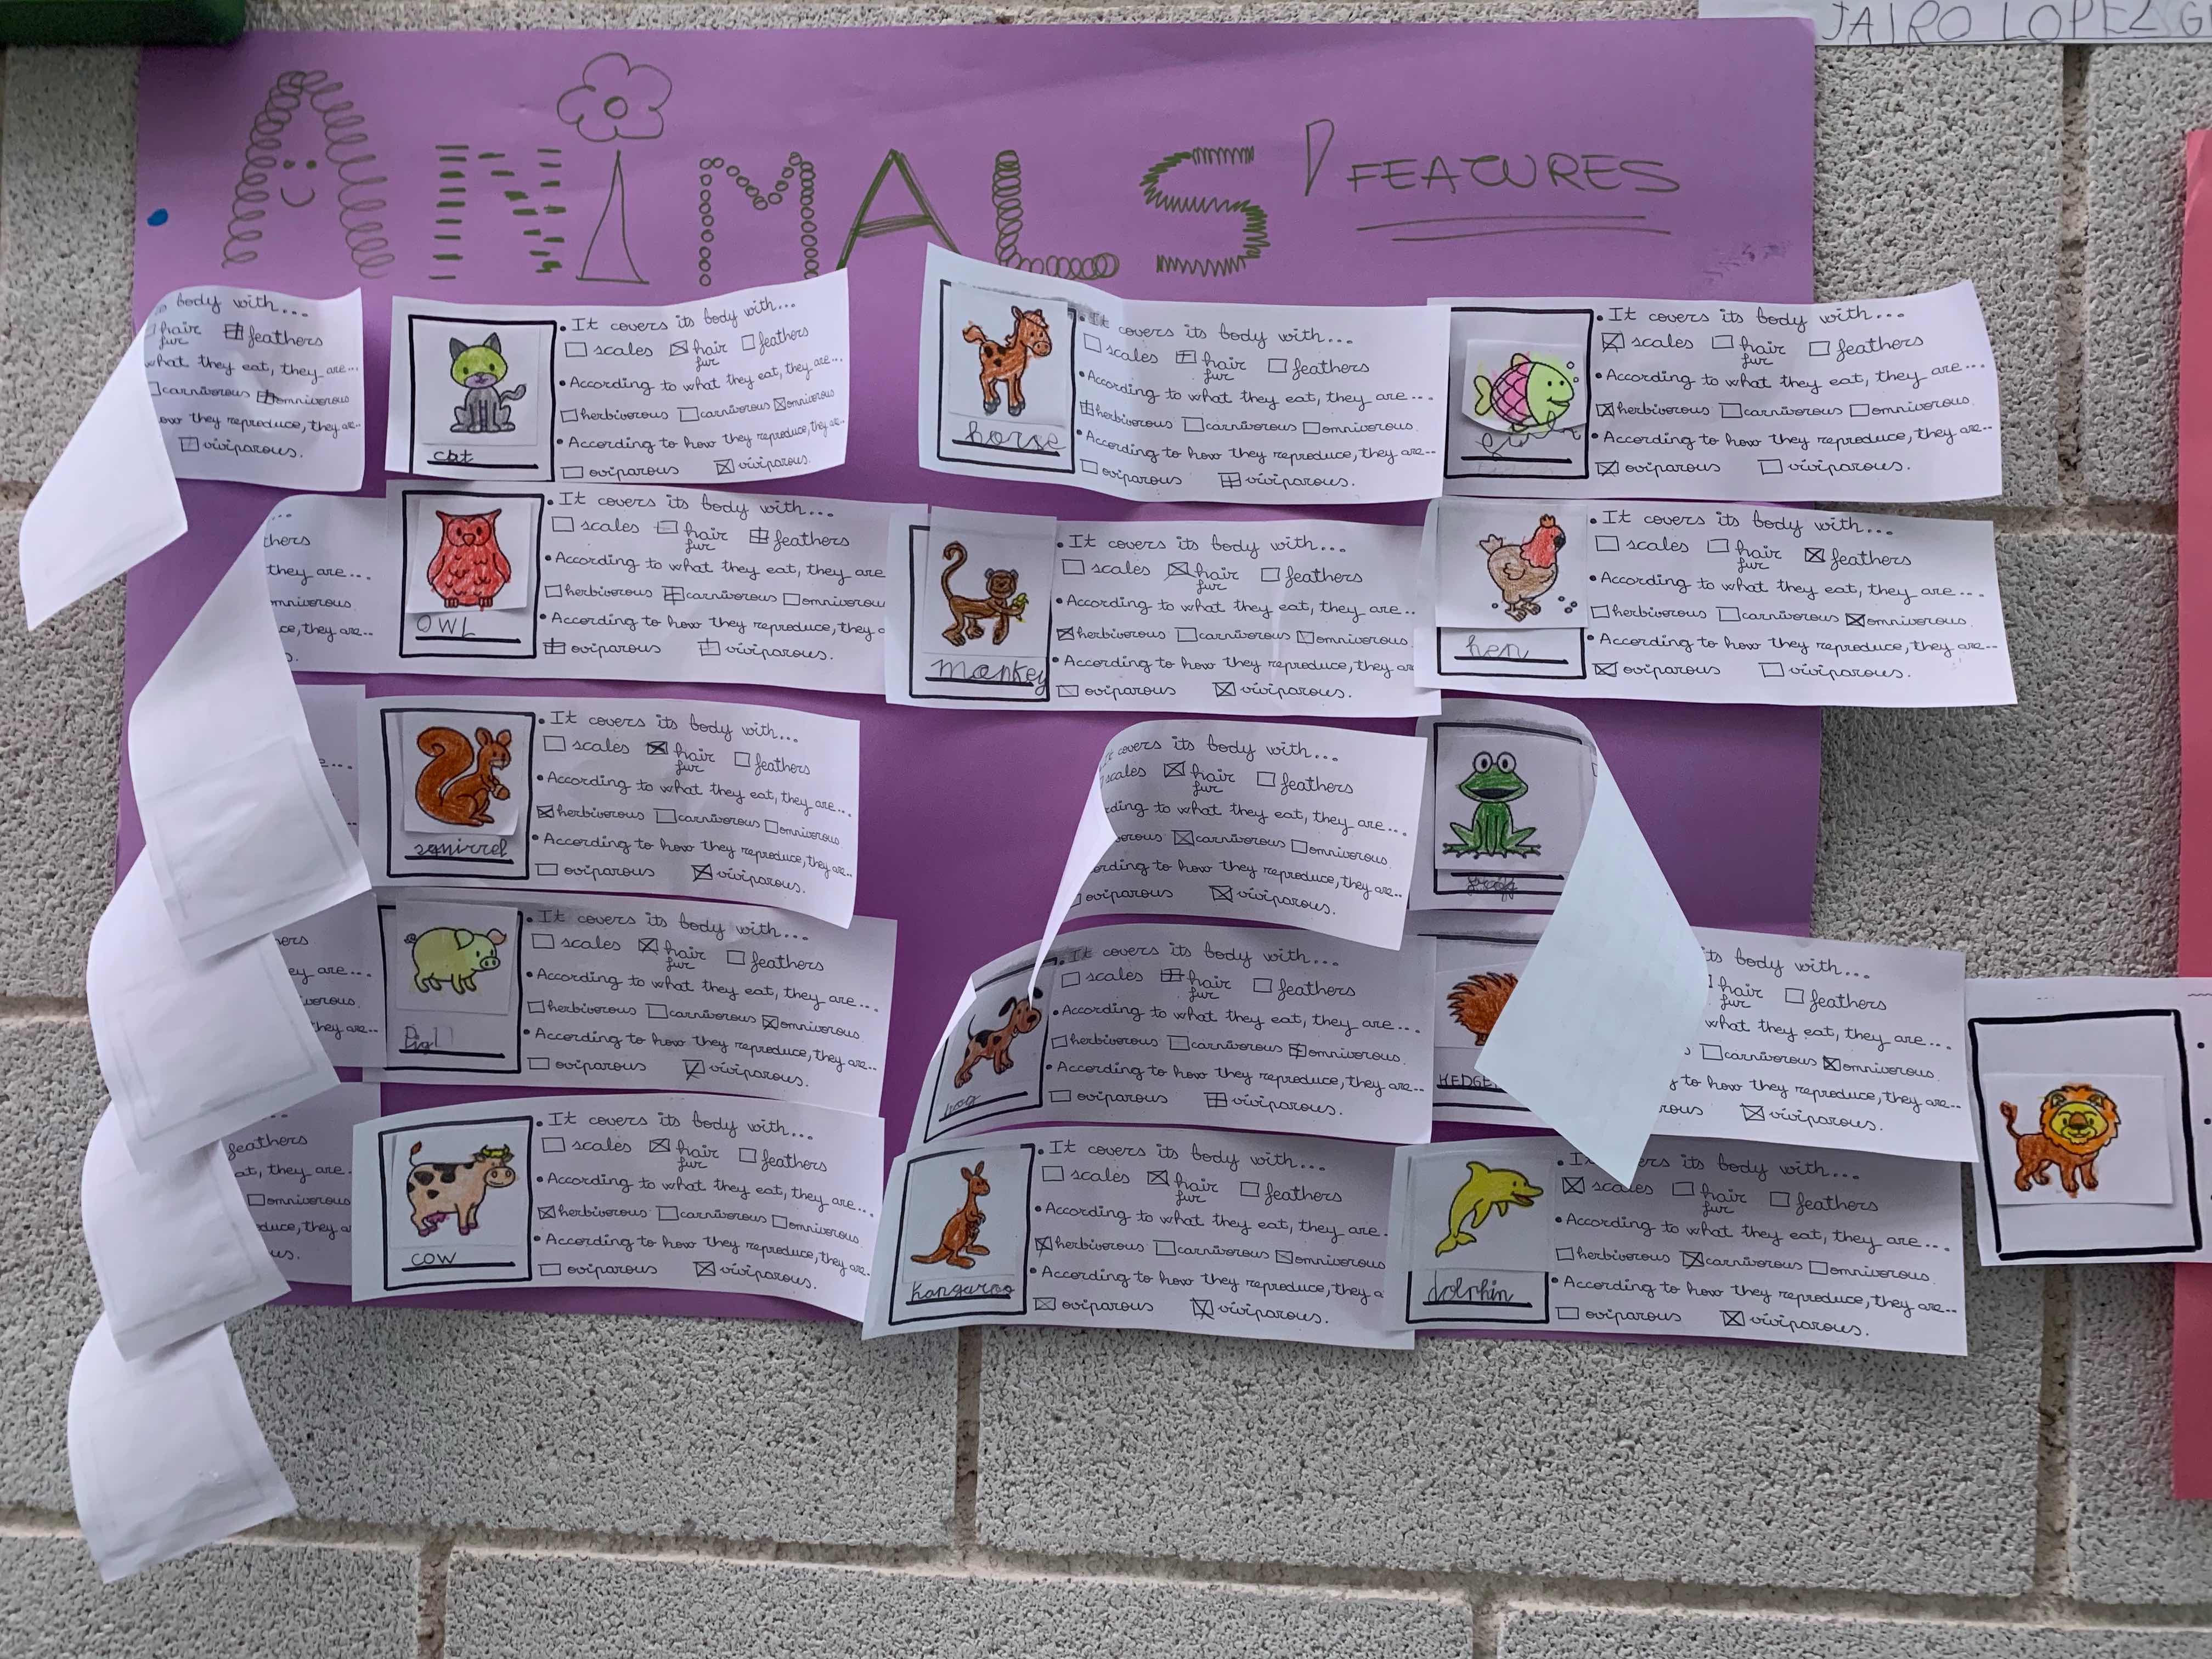 JAIRO LOPEZ G
ANIMALS' FEATURES
body with...
hair feathers
fur
what they eat, they are...
carnivorous omnivorous
how they reproduce, they are...
viviparous.
cat
• It covers its body with...
scales hair feathers
fur
• According to what they eat, they are...
herbivorous carnivorous omnivorous
• According to how they reproduce, they are...
oviparous viviparous.
horse
• It covers its body with...
scales hair feathers
fur
• According to what they eat, they are...
herbivorous carnivorous omnivorous.
• According to how they reproduce, they are...
oviparous viviparous.
• It covers its body with...
scales hair feathers
fur
• According to what they eat, they are...
herbivorous carnivorous omnivorous.
• According to how they reproduce, they are...
oviparous viviparous.
...
they are...
omnivorous.
they are...
OWL
• It covers its body with...
scales hair feathers
fur
• According to what they eat, they are
herbivorous carnivorous omnivorou
• According to how they reproduce, they a
oviparous viviparous.
monkey
• It covers its body with...
scales hair feathers
fur
• According to what they eat, they are...
herbivorous carnivorous omnivorous.
• According to how they reproduce, they ar
oviparous viviparous.
hen
• It covers its body with...
scales hair feathers
fur
• According to what they eat, they are...
herbivorous carnivorous omnivorous.
• According to how they reproduce, they are...
oviparous viviparous.
squirrel
• It covers its body with...
scales hair feathers
fur
• According to what they eat, they are...
herbivorous carnivorous omnivorous.
• According to how they reproduce, they are...
oviparous viviparous.
covers its body with...
scales hair feathers
fur
ding to what they eat, they are...
orous carnivorous omnivorous.
ording to how they reproduce, they are...
oviparous viviparous.
they are...
Pig
• It covers its body with...
scales hair feathers
fur
• According to what they eat, they are...
herbivorous carnivorous omnivorous.
• According to how they reproduce, they are...
oviparous viviparous.
• It covers its body with...
scales hair feathers
fur
• According to what they eat, they are...
herbivorous carnivorous omnivorous.
• According to how they reproduce, they are...
oviparous viviparous.
HEDGE
its body with...
hair feathers
fur
what they eat, they are...
carnivorous omnivorous.
to how they reproduce, they are...
rous viviparous.
feathers
at, they are.
omnivorous
duce, they a
us.
cow
• It covers its body with...
scales hair feathers
fur
• According to what they eat, they are...
herbivorous carnivorous omnivorous.
• According to how they reproduce, they are..
oviparous viviparous.
kangaroo
• It covers its body with...
scales hair feathers
fur
• According to what they eat, they are.
herbivorous carnivorous omnivorous
• According to how they reproduce, they a
oviparous viviparous.
dolphin
• It covers its body with...
scales hair feathers
fur
• According to what they eat, they are...
herbivorous carnivorous omnivorous.
• According to how they reproduce, they are...
oviparous viviparous.